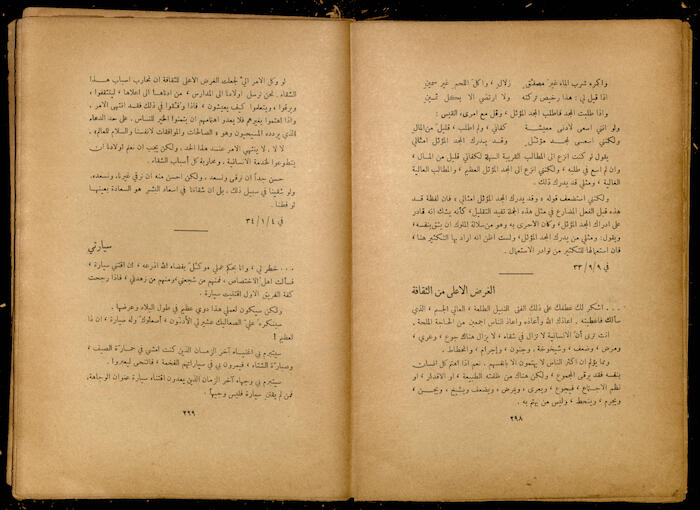 واكره شرب الماء غير مصفق زلال ، وآكل اللحم غير سمين
اذا قيل لي : هذا رخيص تركته ولا ارتضي الا بكل ثمين
واذا طلبت المجد فاطلب المجد المؤثل ، وقل مع امرىء القيس :
ولو انني اسعى لادنى معيشة كفاني ، ولم اطلب ، قليل من المال
ولكنني اسعى لمجد مؤثل وقد يدرك المجد المؤثل امثالي
يقول لو كنت انزع الى المطالب القريبة السهلة لكفاني قليل من المال ،
وان لم اسع في طلبه ؛ ولكنني انزع الى المجد المؤثل العظيم ، والمطالب العالية
الغالية ، ومثلي قد يدرك ذلك .
ولكنني استضعف قوله « وقد يدرك المجد المؤثل امثالي » فان لفظة قد
هذه قبل الفعل المضارع في مثل هذه الجملة تفيد التقليل ، كأنه يشك انه قادر
على ادراك المجد المؤثل ، وكان الاحرى به وهو من سلالة الملوك ان يثق بنفسه ،
ويقول: ومثلي من يدرك المجد المؤثل . ولست اظن انه اراد بها التكثير هنا ،
فان استعمالها للتكثير من نوادر الاستعمال .
في ٩ / ٩ / ٣٣
الغرض الاعلى من الثقافة
. . . اشكر لك عطفك على ذلك الفتى النبيل الطلعة ، العالي الجسم ، الذي
سألك فاعطيته . اعاذك الله وأعاذه واعاذ الناس اجمعين من الحاجة الملحة .
انت ترى أنّ الانسانية لا تزال في شقاء ، لا يزال هناك جوع ، وعري ،
ومرض ، وضعف ، وشيخوخة ، وجنون ، واجرام ، وانحطاط .
ومما يؤلم ان اكثر الناس لا يهتمون الا بانفسهم . نعم اذا اهتم كل انسان
بنفسه فقد يرقى المجموع ، ولكن هناك من ظلمته الطبيعة ، او الاقدار ، او
نظم الاجتماع ، فيجوع ، ويعرى ، ويمرض ، ويضعف ويشيخ ، ويجن ،
ويجرم ، وينحط ، وليس من يهتم به .
٢٩٨
لو وكل الامر اليّ لجعلت الغرض الاعلى للثقافة ان نحارب اسباب هـذا
الشقاء . نحن نرسل اولادنا الى المدارس ، من ادناها الى اعلاها ، ليتثقفوا ،
ويرقوا ، ويتعلموا كيف يعيشون ، فاذا وفقوا في ذلك فقد انتهى الامر .
واذا اهتموا بغيرهم فلا يعدو اهتمامهم ان يتمنوا الخير للنـاس. على حد الدعاء
الذي يردده المسيحيون وهو « الصالحات والموافقات لانفسنا والسلام للعالم» .
لا ، لا ، لا ينتهي الامر عنـد هـذا الحد ، ولكن يجب ان نعلم اولادنا ان
يتطوعوا لخدمة الانسانية ، ومحاربة كل أسباب الشقاء .
حسن جداً ان نرقى ونسعد ، ولكن احسن منه ان نرقي غيرنا ونسعده.
ولو شقينا في سبيل ذلك ، بل ان شقاءنا في اسعاد البشر هو السعادة بعينها
لو فطنا .
في ٤ / ١ / ٣٤
سيارتي
. . . خطر لي ، وانا بحكم عملي موكـّل بفضاء الله اذرعه ، ان اقتني سيارة ،
فسألت اهل الاختصاص ، فمنهم من شجعني ومنهم من زهدني ، فاذا رجحت
كفة الفريق الاول اقتنيت سيارة .
ولكن سيكون لعملي هذا دوي عظيم في طول البلاد وعرضها .
سينكره عليّ الصعاليك عشيرتي الأدنون ، أصعلوك وله سيارة ، ان ذا
لعظيم !
سيتبرم بي اغنياء آخر الزمان الذين كنت امشي في حمـارّة الصيف ،
وصبارّة الشتاء ، فيمرون بي في سياراتهم الفخمة ، فاتنحى ليعبروا .
سيتبرم بي وجهاء آخر الزمان الذين يعدون اقتناء سيارة عنوان الوجاهة،
فمن لم يقتن سيارة فليس وجيهاً .
٢٩٩